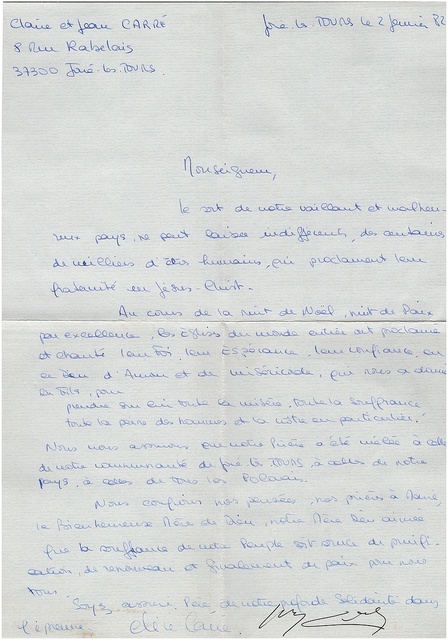 Claire et Jean CARRÉ Joué les TOURS le 2 Janvier 82
8 Rue Rabelais
37300 Joué-les-TOURS.
Monseigneur,
le sort de votre vaillant et malheu-
reux pays, ne peut laisser indifférents, des centaines
de milliers d'êtres humains, qui proclament leur
fraternité en Jésus-Christ.
Au cours de la nuit de Noël, nuit de Paix
par excellence, les Églises du monde entier ont proclamé
et chanté leur Foi, leur Espérance, leur confiance, en
un Dieu d'Amour et de miséricorde, qui nous a donné
un Fils, pour
prendre sur lui toute la misère, toute la souffrance
toute la peine des hommes et la vôtre en particulier.
Nous vous assurons que notre Prière a été mêlée à celle
de notre communauté de Joué les TOURS, à celles de notre
pays, à celles de tous les Polonais.
Nous confions nos pensées, nos prières à Marie,
la Bienheureuse Mère de Dieu, notre Mère bien aimée
Que la souffrance de votre Peuple soit source de purifi-
cation, de renouveau et finalement de paix pour nous
tous.
Soyez assuré, Père, de notre profonde Solidarité dans
l'épreuve. Claire Carré